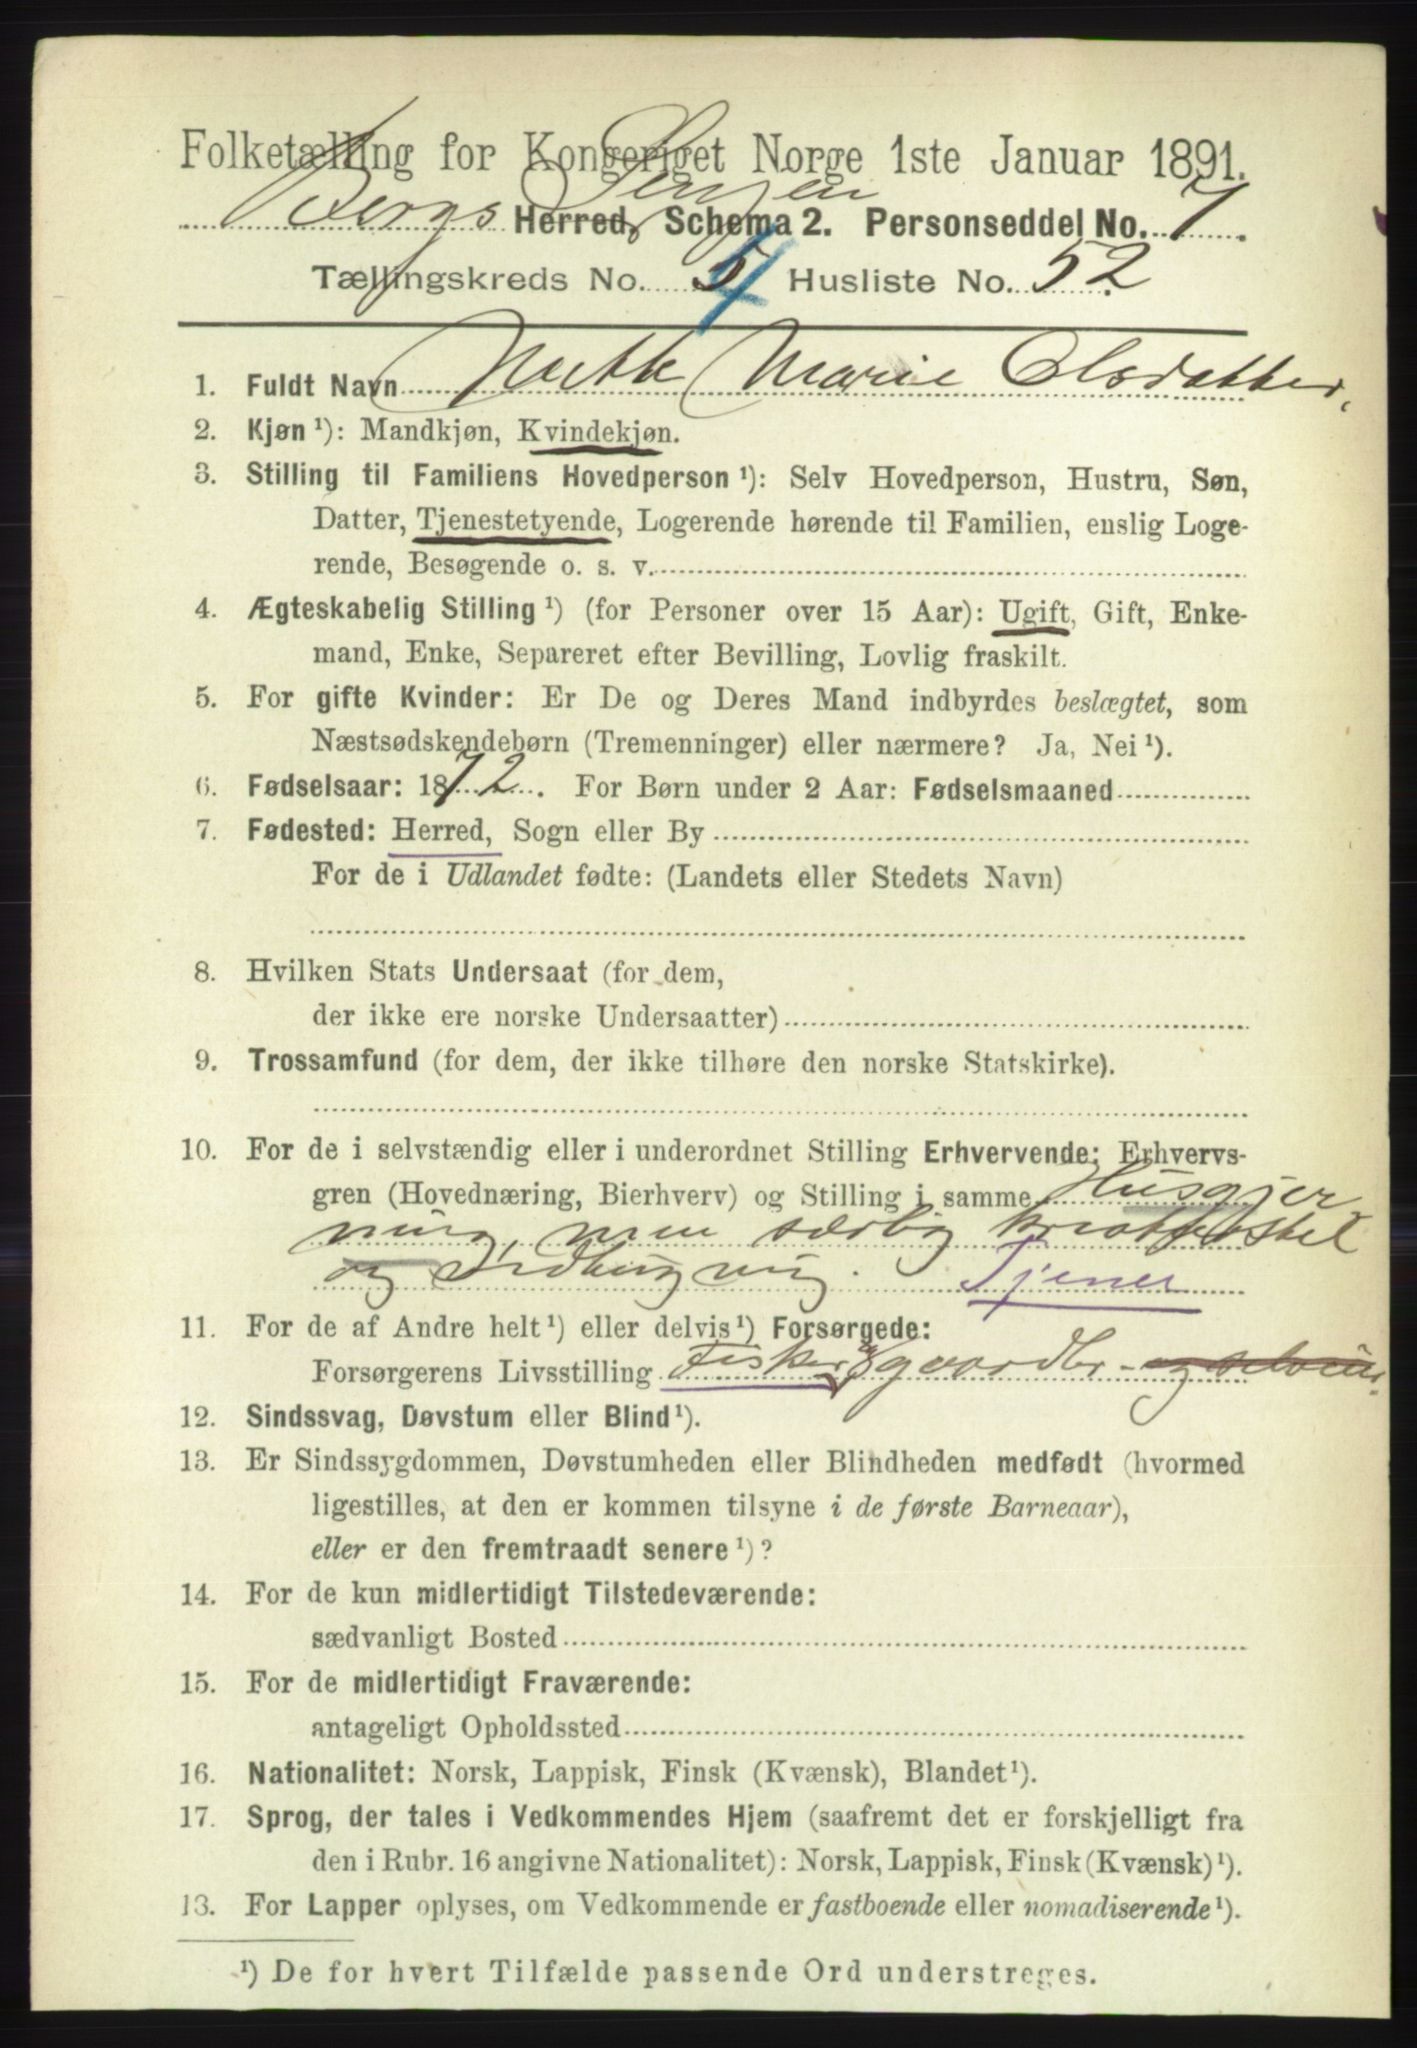 Folketælling for Kongeriget Norge 1ste Januar 1891.
Bergs Herred, Senjen Schema 2. Personseddel No. 7.
Tællingskreds No. 5 4 Husliste No. 52.
1. Fuldt Navn Marie Olsdatter,
2. Kjøn ¹): Mandkjøn, Kvindekjøn.
3. Stilling til Familiens Hovedperson ¹): Selv Hovedperson, Hustru, Søn,
Datter, Tjenestetyende, Logerende hørende til Familien, enslig Loge-
rende, Besøgende o. s. v.
4. Ægteskabelig Stilling ¹) (for Personer over 15 Aar): Ugift, Gift, Enke-
mand, Enke, Separeret efter Bevilling, Lovlig fraskilt.
5. For gifte Kvinder: Er De og Deres Mand indbyrdes beslægtet, som
Næstsødskendebørn (Tremenninger) eller nærmere? Ja, Nei ¹).
6. Fødselsaar: 1872. For Børn under 2 Aar: Fødselsmaaned
7. Fødested: Herred, Sogn eller By
For de i Udlandet fødte: (Landets eller Stedets Navn)
8. Hvilken Stats Undersaat (for dem,
der ikke ere norske Undersaatter)
9. Trossamfund (for dem, der ikke tilhøre den norske Statskirke).
10. For de i selvstændig eller i underordnet Stilling Erhvervende: Erhvervs-
gren (Hovednæring, Bierhverv) og Stilling i samme Husgjer
ning, men særlig kreaturstel
og Tjener
11. For de af Andre helt ¹) eller delvis ¹) Forsørgede:
Forsørgerens Livsstilling Fisker & gaardbr. -
12. Sindssvag, Døvstum eller Blind ¹).
13. Er Sindssygdommen, Døvstumheden eller Blindheden medfødt (hvormed
ligestilles, at den er kommen tilsyne i de første Barneaar),
eller er den fremtraadt senere ¹)?
14. For de kun midlertidigt Tilstedeværende:
sædvanligt Bosted
15. For de midlertidigt Fraværende:
antageligt Opholdssted
16. Nationalitet: Norsk, Lappisk, Finsk (Kvænsk), Blandet ¹).
17. Sprog, der tales i Vedkommendes Hjem (saafremt det er forskjelligt fra
den i Rubr. 16 angivne Nationalitet): Norsk, Lappisk, Finsk (Kvænsk) ¹).
13. For Lapper oplyses, om Vedkommende er fastboende eller nomadiserende ¹).
¹) De for hvert Tilfælde passende Ord understreges.